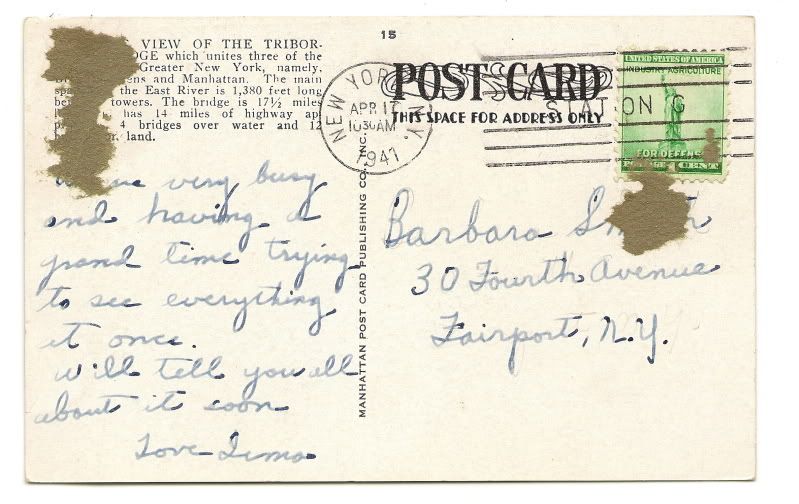 15
VIEW OF THE TRIBOR-
which unites three of the
Greater New York, namely,
and Manhattan. The main
the East River is 1,380 feet long
towers. The bridge is 17½ miles
has 14 miles of highway ap-
4 bridges over water and 12
land.
are very busy
and having a
grand time trying
to see everything
at once.
Will tell you all
about it soon
Love
MANHATTAN POST CARD PUBLISHING CO., INC.
POST CARD
THIS SPACE FOR ADDRESS ONLY
NEW YORK, N.Y.
APR 17
1030AM
1941
STATION G
UNITED STATES OF AMERICA
INDUSTRY AGRICULTURE
FOR DEFENSE
CENT
Barbara
30 Fourth Avenue
Fairport, N.Y.